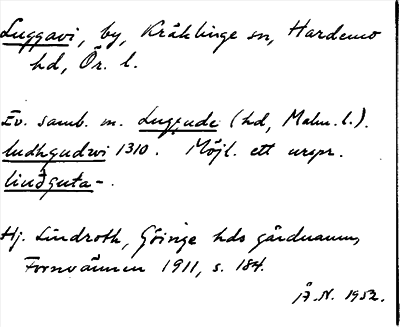 Luggavi, by, Kräklinge sn, Hardemo
hd, Ör. l.
Ev. samb. m. Luggude (hd, Malm. l.).
ludhgudwi 1310. Möjl. ett urspr.
liuðguta-.
Hj. Lindroth, Göinge hds gårdnamn,
Fornvännen 1911, s. 184.
Å.N. 1952.